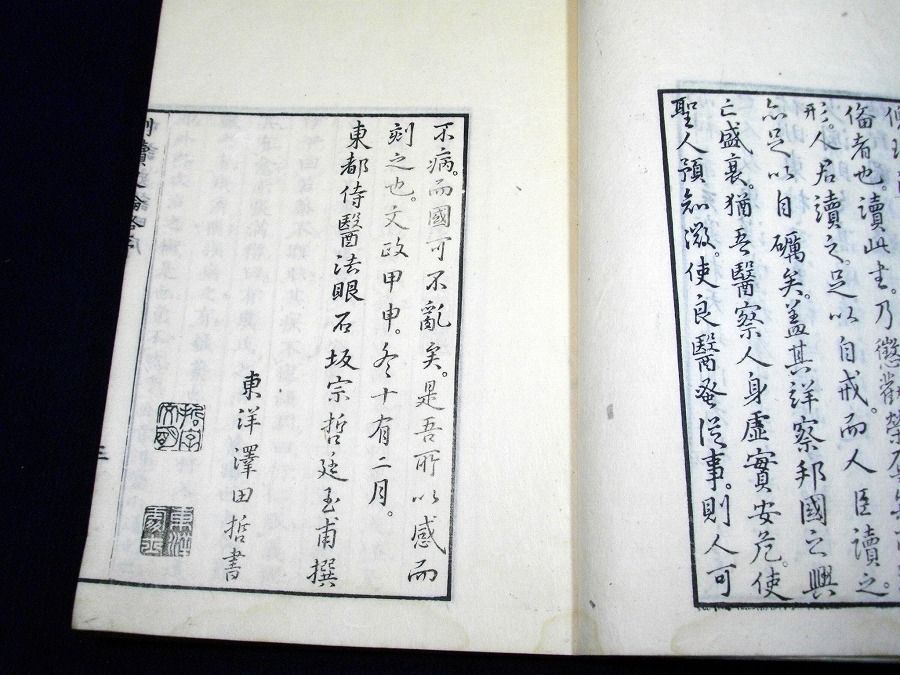 者也。讀此書。乃懲勸榮辱
形。人君讀之。足以自戒。而人臣讀之。
亦足以自礪矣。蓋其詳察邦國之興
亡盛衰。猶吾醫察人身虛實安危。使
聖人預知微。使良醫蚤從事。則人可
不病。而國可不亂矣。是吾所以感而
刻之也。文政甲申。冬十有二月。
東都侍醫法眼石坂宗哲廷玉甫撰
東洋澤田哲書
哲字
東洋
三